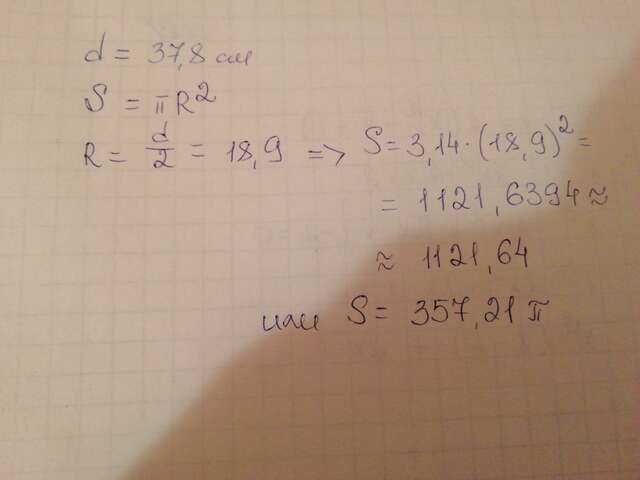 d = 37,8 см
S = πR²
R = d/2 = 18,9 => S = 3,14·(18,9)² =
= 1121,6394 ≈
≈ 1121,64
или S = 357,21π